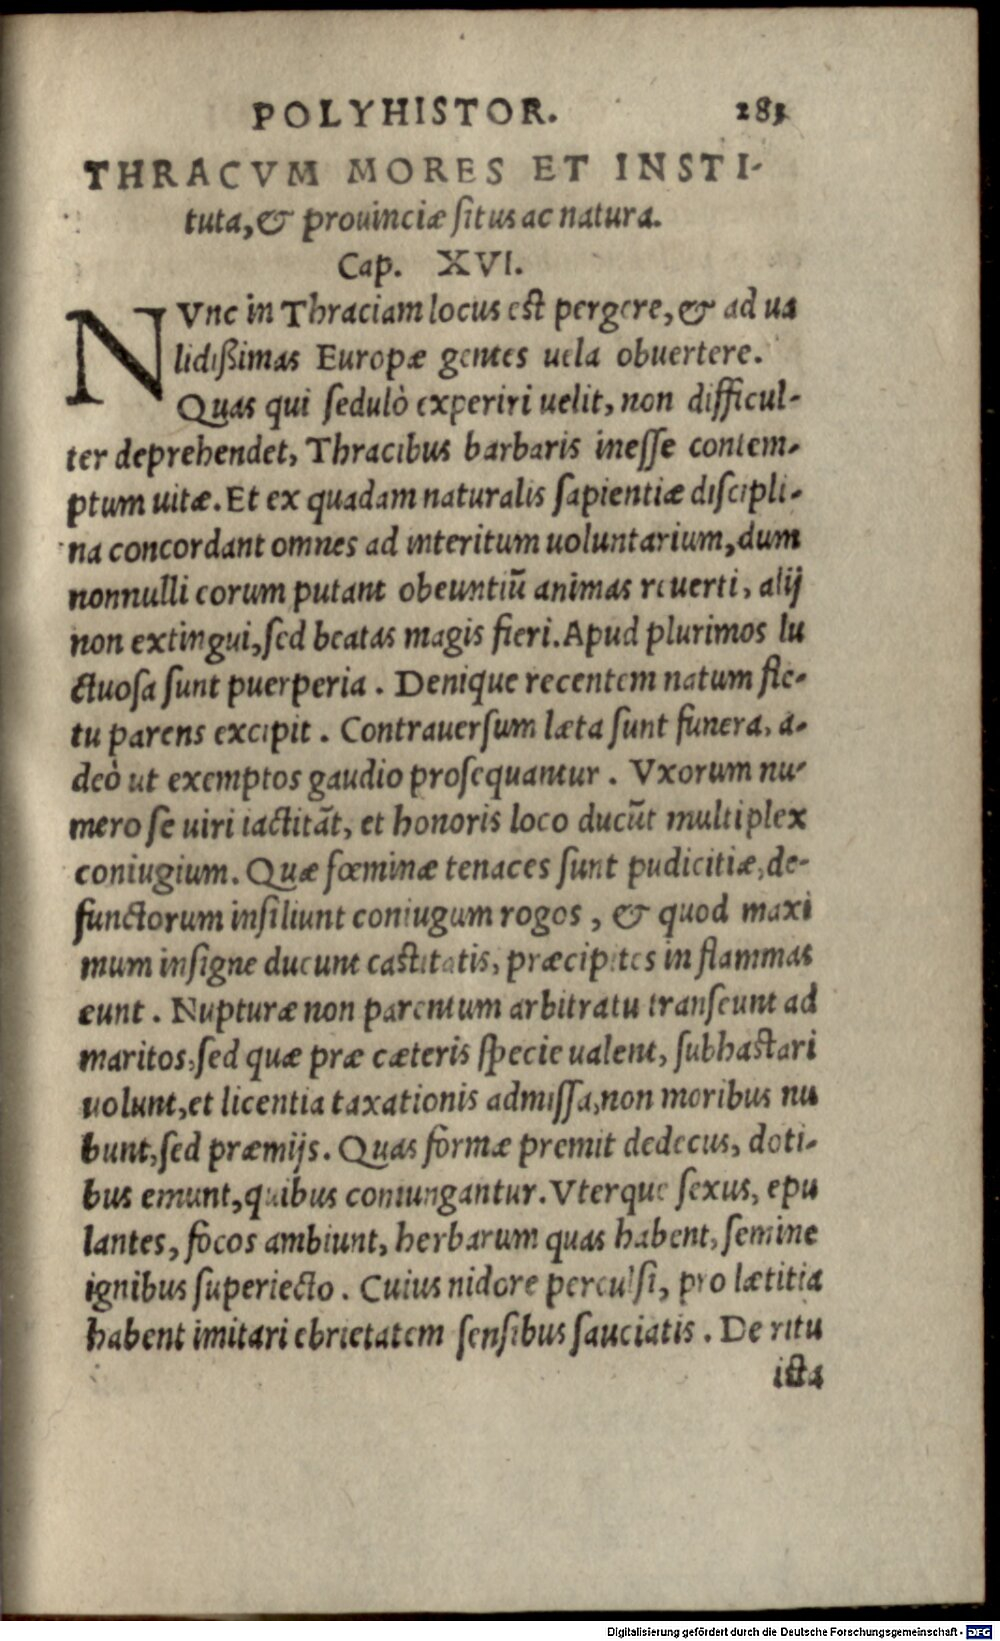 POLYHISTOR. 283
THRACVM MORES ET INSTI-
tuta, & prouinciæ situs ac natura.
Cap. XVI.
NVnc in Thraciam locus est pergere, & ad ua
lidißimas Europæ gentes uela obuertere.
Quas qui sedulò experiri uelit, non difficul-
ter deprehendet, Thracibus barbaris inesse contem-
ptum uitæ. Et ex quadam naturalis sapientiæ discipli-
na concordant omnes ad interitum uoluntarium, dum
nonnulli eorum putant obeuntiũ animas reuerti, alij
non extingui, sed beatas magis fieri. Apud plurimos lu
ctuosa sunt puerperia. Denique recentem natum fle-
tu parens excipit. Contrauersum læta sunt funera, a-
deò ut exemptos gaudio prosequantur. Vxorum nu-
mero se uiri iactitãt, et honoris loco ducũt multiplex
coniugium. Quæ fœminæ tenaces sunt pudicitiæ, de-
functorum insiliunt coniugum rogos, & quod maxi
mum insigne ducunt castitatis, præcipites in flammas
eunt. Nupturæ non parentum arbitratu transeunt ad
maritos, sed quæ præ cæteris specie ualent, subhastari
uolunt, et licentia taxationis admissa, non moribus nu
bunt, sed præmijs. Quas formæ premit dedecus, doti-
bus emunt, quibus coniungantur. Vterque sexus, epu
lantes, focos ambiunt, herbarum quas habent, semine
ignibus superiecto. Cuius nidore perculsi, pro lætitia
habent imitari ebrietatem sensibus sauciatis. De ritu
ista
Digitalisierung gefördert durch die Deutsche Forschungsgemeinschaft - DFG